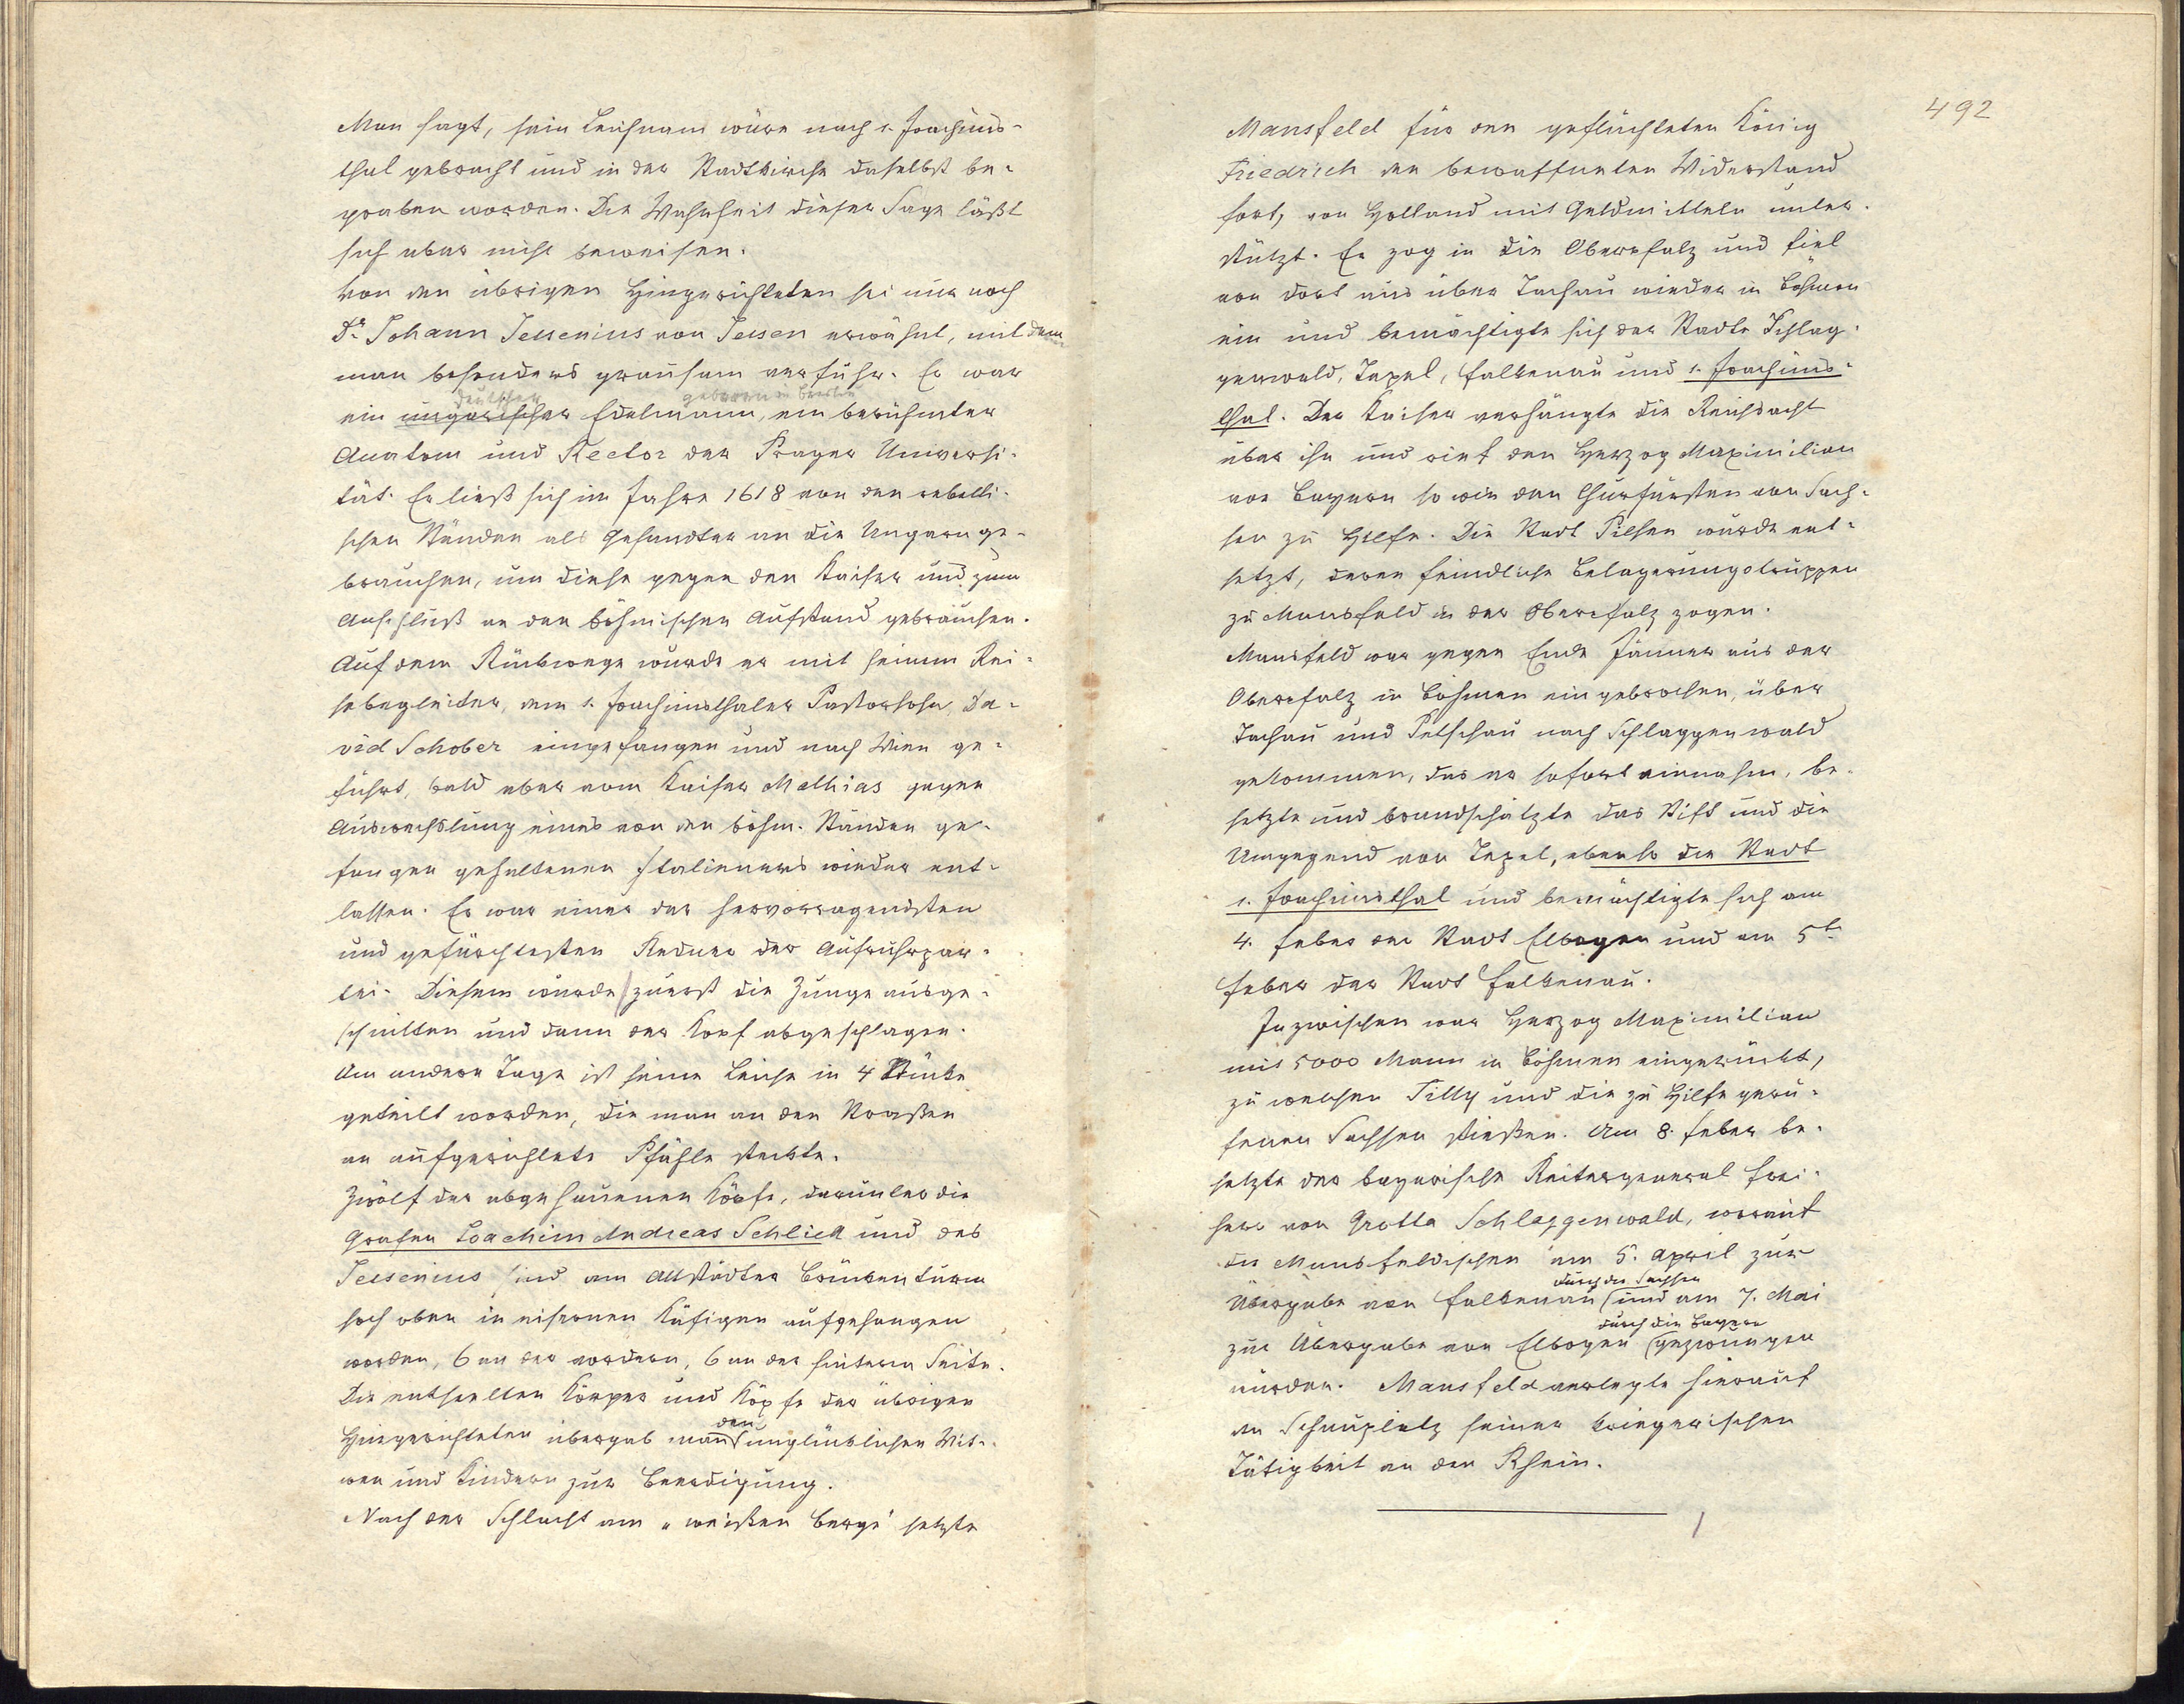 Man sagt, sein Leichnam wäre nach s. Joachims-
thal gebracht und in der Stadtkirche daselbst be-
graben worden. Die Wahrheit dieser Sage läßt
sich aber nicht beweisen.
Von den übrigen Hingerichteten sei nur noch
Dr. Johann Jessenius von Jessen erwähnt, mit dem
man besonders grausam verfuhr. Er war
deutscher geboren in Breslau
ein ungarischer Edelmann, ein berühmter
Anatom und Rector der Prager Universi-
tät. Er ließ sich im Jahre 1618 von den rebelli-
schen Ständen als Gesandter an die Ungarn ge-
brauchen, um diese gegen den Kaiser und zum
Anschluß an den böhmischen Aufstand gebrauchen.
Auf dem Rückwege wurde er mit seinem Rei-
sebegleiter, dem s. Joachimsthaler Pastorsohn, Da-
vid Schober eingefangen und nach Wien ge-
führt, bald aber vom Kaiser Mathias gegen
Auswechslung eines von den böhm. Ständen ge-
fangen gehaltenen Italieners wieder ent-
lassen. Er war einer der hervorragendsten
und gefürchtesten Redner der Aufruhrpar-
tei. Diesem wurde zuerst die Zunge ausge-
schnitten und dann der Kopf abgeschlagen.
Am andern Tage ist seine Leiche in 4 Stücke
geteilt worden, die man an den Straßen
an aufgerichtete Pfähle steckte.
Zwölf der abgehauenen Köpfe, darunter die
Grafen Joachim Andreas Schlick und des
Jessenius sind am Altstädter Brückenturm
hoch oben in eisernen Käfigen aufgehangen
worden, 6 an der vordern, 6 an der hintern Seite.
Die entseelten Körper und Köpfe der übrigen
den
Hingerichteten übergab man unglücklichen Wit-
wen und Kindern zur Beerdigung.
Nach der Schlacht am "weißen Berge" setzte
492
Mansfeld für den geflüchteten König
Friedrich den bewaffneten Widerstand
fort, von Holland mit Geldmitteln unter-
stützt. Er zog in die Oberpfalz und fiel
von dort aus über Tachau wieder in Böhmen
ein und bemächtigte sich der Städte Schlag-
genwald, Tepel, Falkenau und s. Joachims-
thal. Der Kaiser verhängte die Reichsacht
über ihn und rief den Herzog Maximilian
von Bayern so wie den Churfürsten von Sach-
sen zu Hilfe. Die Stadt Pilsen wurde ent-
setzt, deren feindliche Belagerungstruppen
zu Mansfeld in der Oberpfalz zogen.
Mansfeld war gegen Ende Jänner aus der
Oberpfalz in Böhmen eingebrochen, über
Tachau und Petschau nach Schlaggenwald
gekommen, das er sofort einnahm, be-
setzte und brandschatzte das Stift und die
Umgegend von Tepel, ebenso die Stadt
s. Joachimsthal und bemächtigte sich am
4. Feber der Stadt Elbogen und am 5t
Feber der Stadt Falkenau.
Inzwischen war Herzog Maximilian
mit 5000 Mann in Böhmen eingerückt,
zu welchen Tilly und die zu Hilfe geru-
fenen Sachsen stießen. Am 8. Feber be-
setzte der bayerische Reitergeneral Frei-
herr von Grotta Schlaggenwald, worauf
die Mansfeldischen am 5. April zur
durch die Sachsen
Übergabe von Falkenau und am 7. Mai
durch die Bayern
zur Übergabe von Elbogen gezwungen
wurden. Mansfeld verlegte hierauf
den Schauplatz seiner kriegerischen
Tätigkeit an den Rhein.